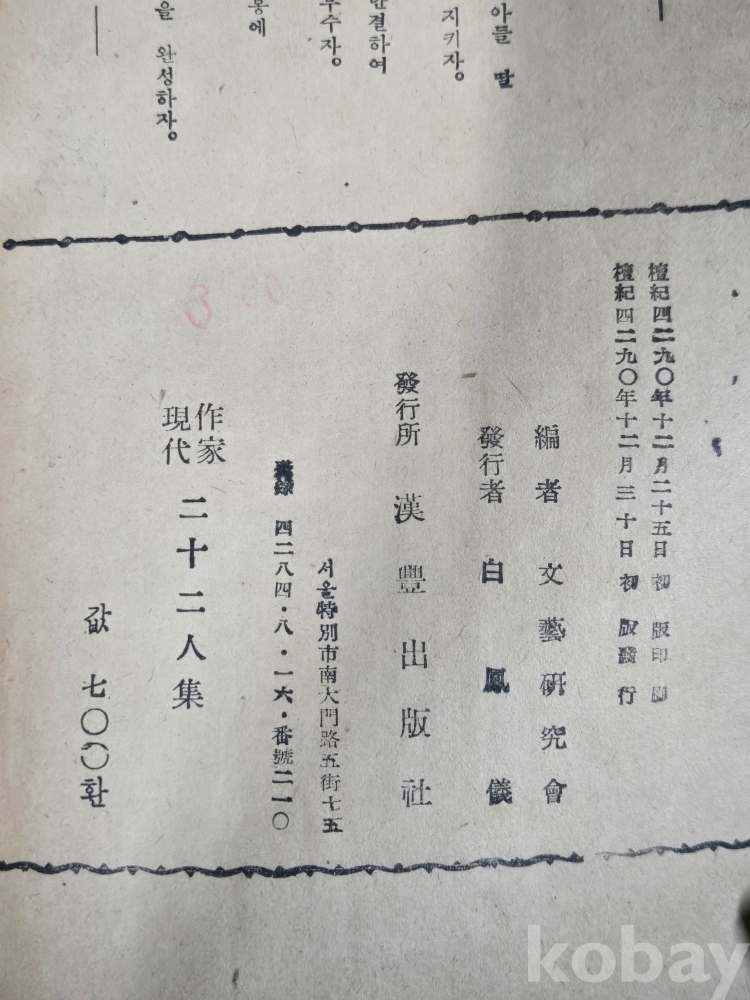 아들 딸
지키자。
단결하여
수자。
몽에
을 완성하자。
檀紀四二九〇年十二月二十五日 初版印刷
檀紀四二九〇年十二月三十日 初版發行
編者 文藝硏究會
發行者 白鳳儀
發行所 漢豐出版社
서울特別市南大門路五街七五
登錄 四二八四·八·一六·番號二一〇
現代作家 二十二人集
값 七〇〇환
kobay